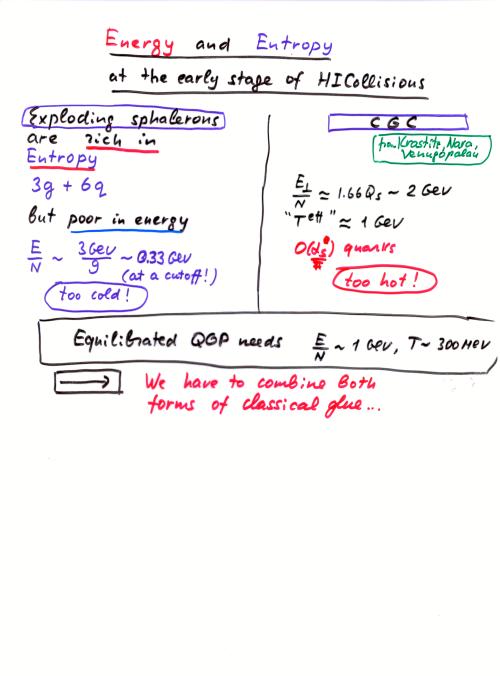 Energy and Entropy
at the early stage of HICollisions
Exploding sphalerons
are rich in
Entropy
3g + 6q
but poor in energy
E/N ~ 3GeV/9 ~ 0.33 GeV
(at a cutoff!)
too cold!
CGC
from Krasnitz, Nara,
Venugopalan
E⊥/N ≈ 1.66Qs ~ 2 GeV
"T^eff" ≈ 1 GeV
O(αs) quarks
too hot!
Equilibrated QGP needs E/N ~ 1 GeV, T ~ 300 MeV
We have to combine both
forms of classical glue...